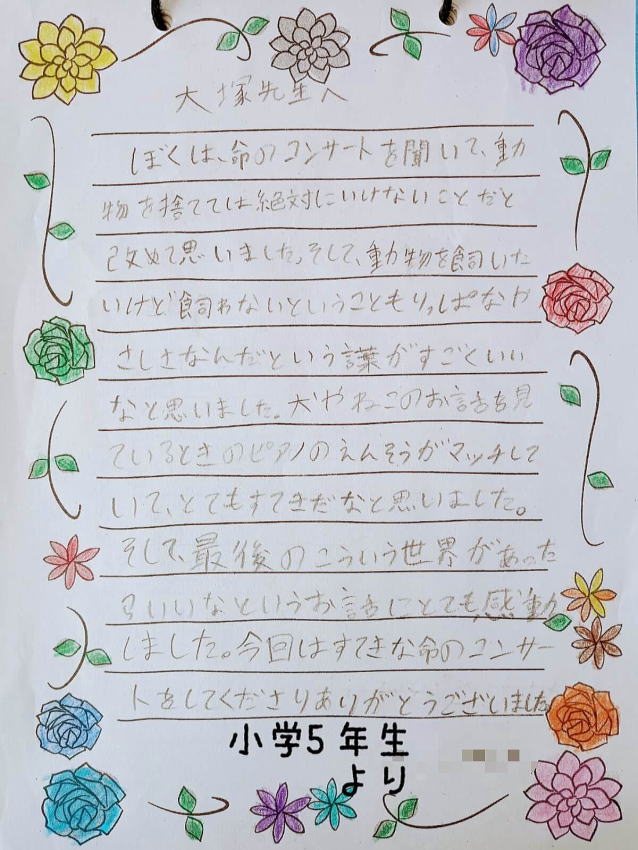 大塚先生へ
ぼくは、命のコンサートを聞いて、動
物を捨てては絶対にいけないことだと
改めて思いました。そして、動物を飼いた
いけど飼わないということもりっぱなや
さしさなんだという言葉がすごくいい
なと思いました。犬やねこのお話を見
ているときのピアノのえんそうがマッチして
いて、とてもすてきだなと思いました。
そして、最後のこういう世界があった
らいいなというお話にとても感動
しました。今回はすてきな命のコンサー
トをしてくださりありがとうございました
小学5年生
より